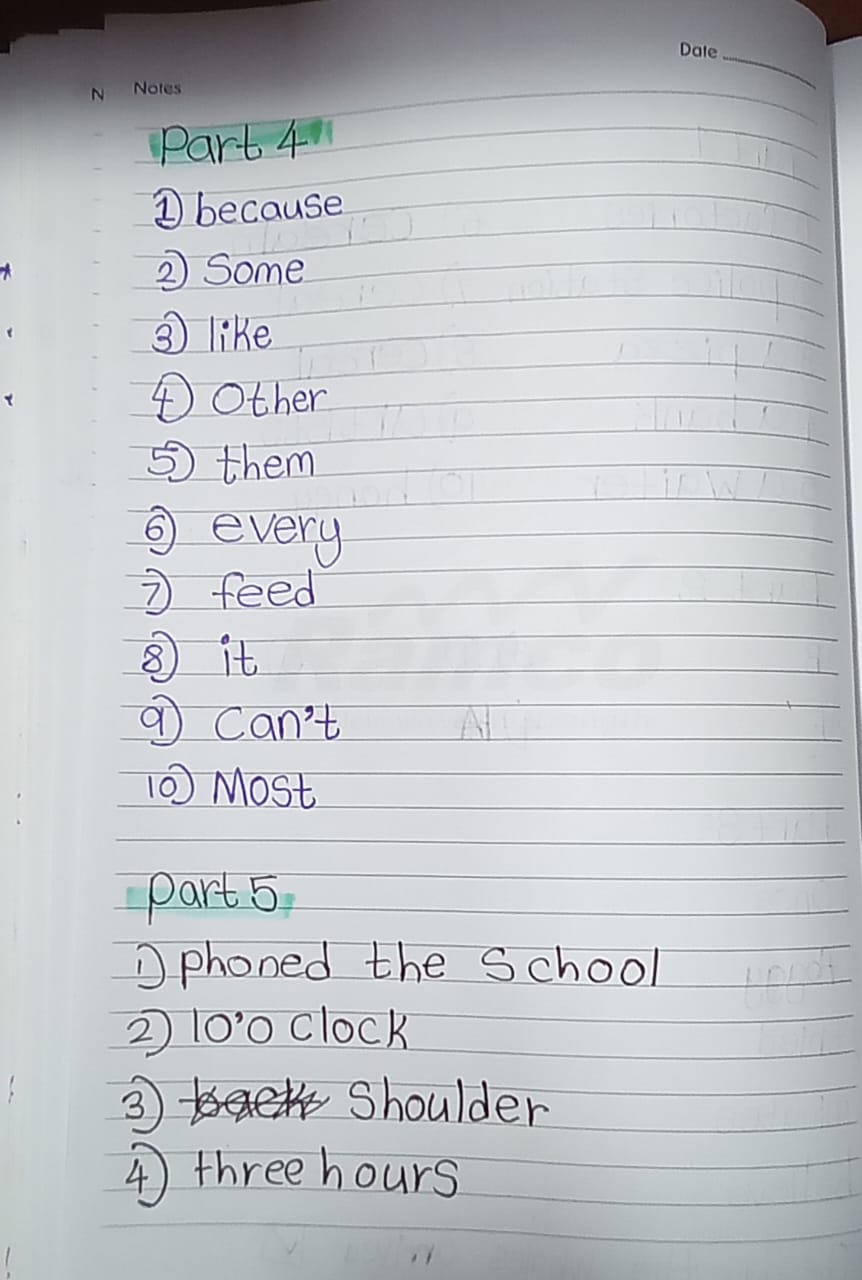 Date
N Notes
Part 4
1) because
2) Some
3) like
4) Other
5) them
6) every
7) feed
8) it
9) Can't
10) Most
part 5
1) phoned the School
2) 10'0 Clock
3) back Shoulder
4) three hours